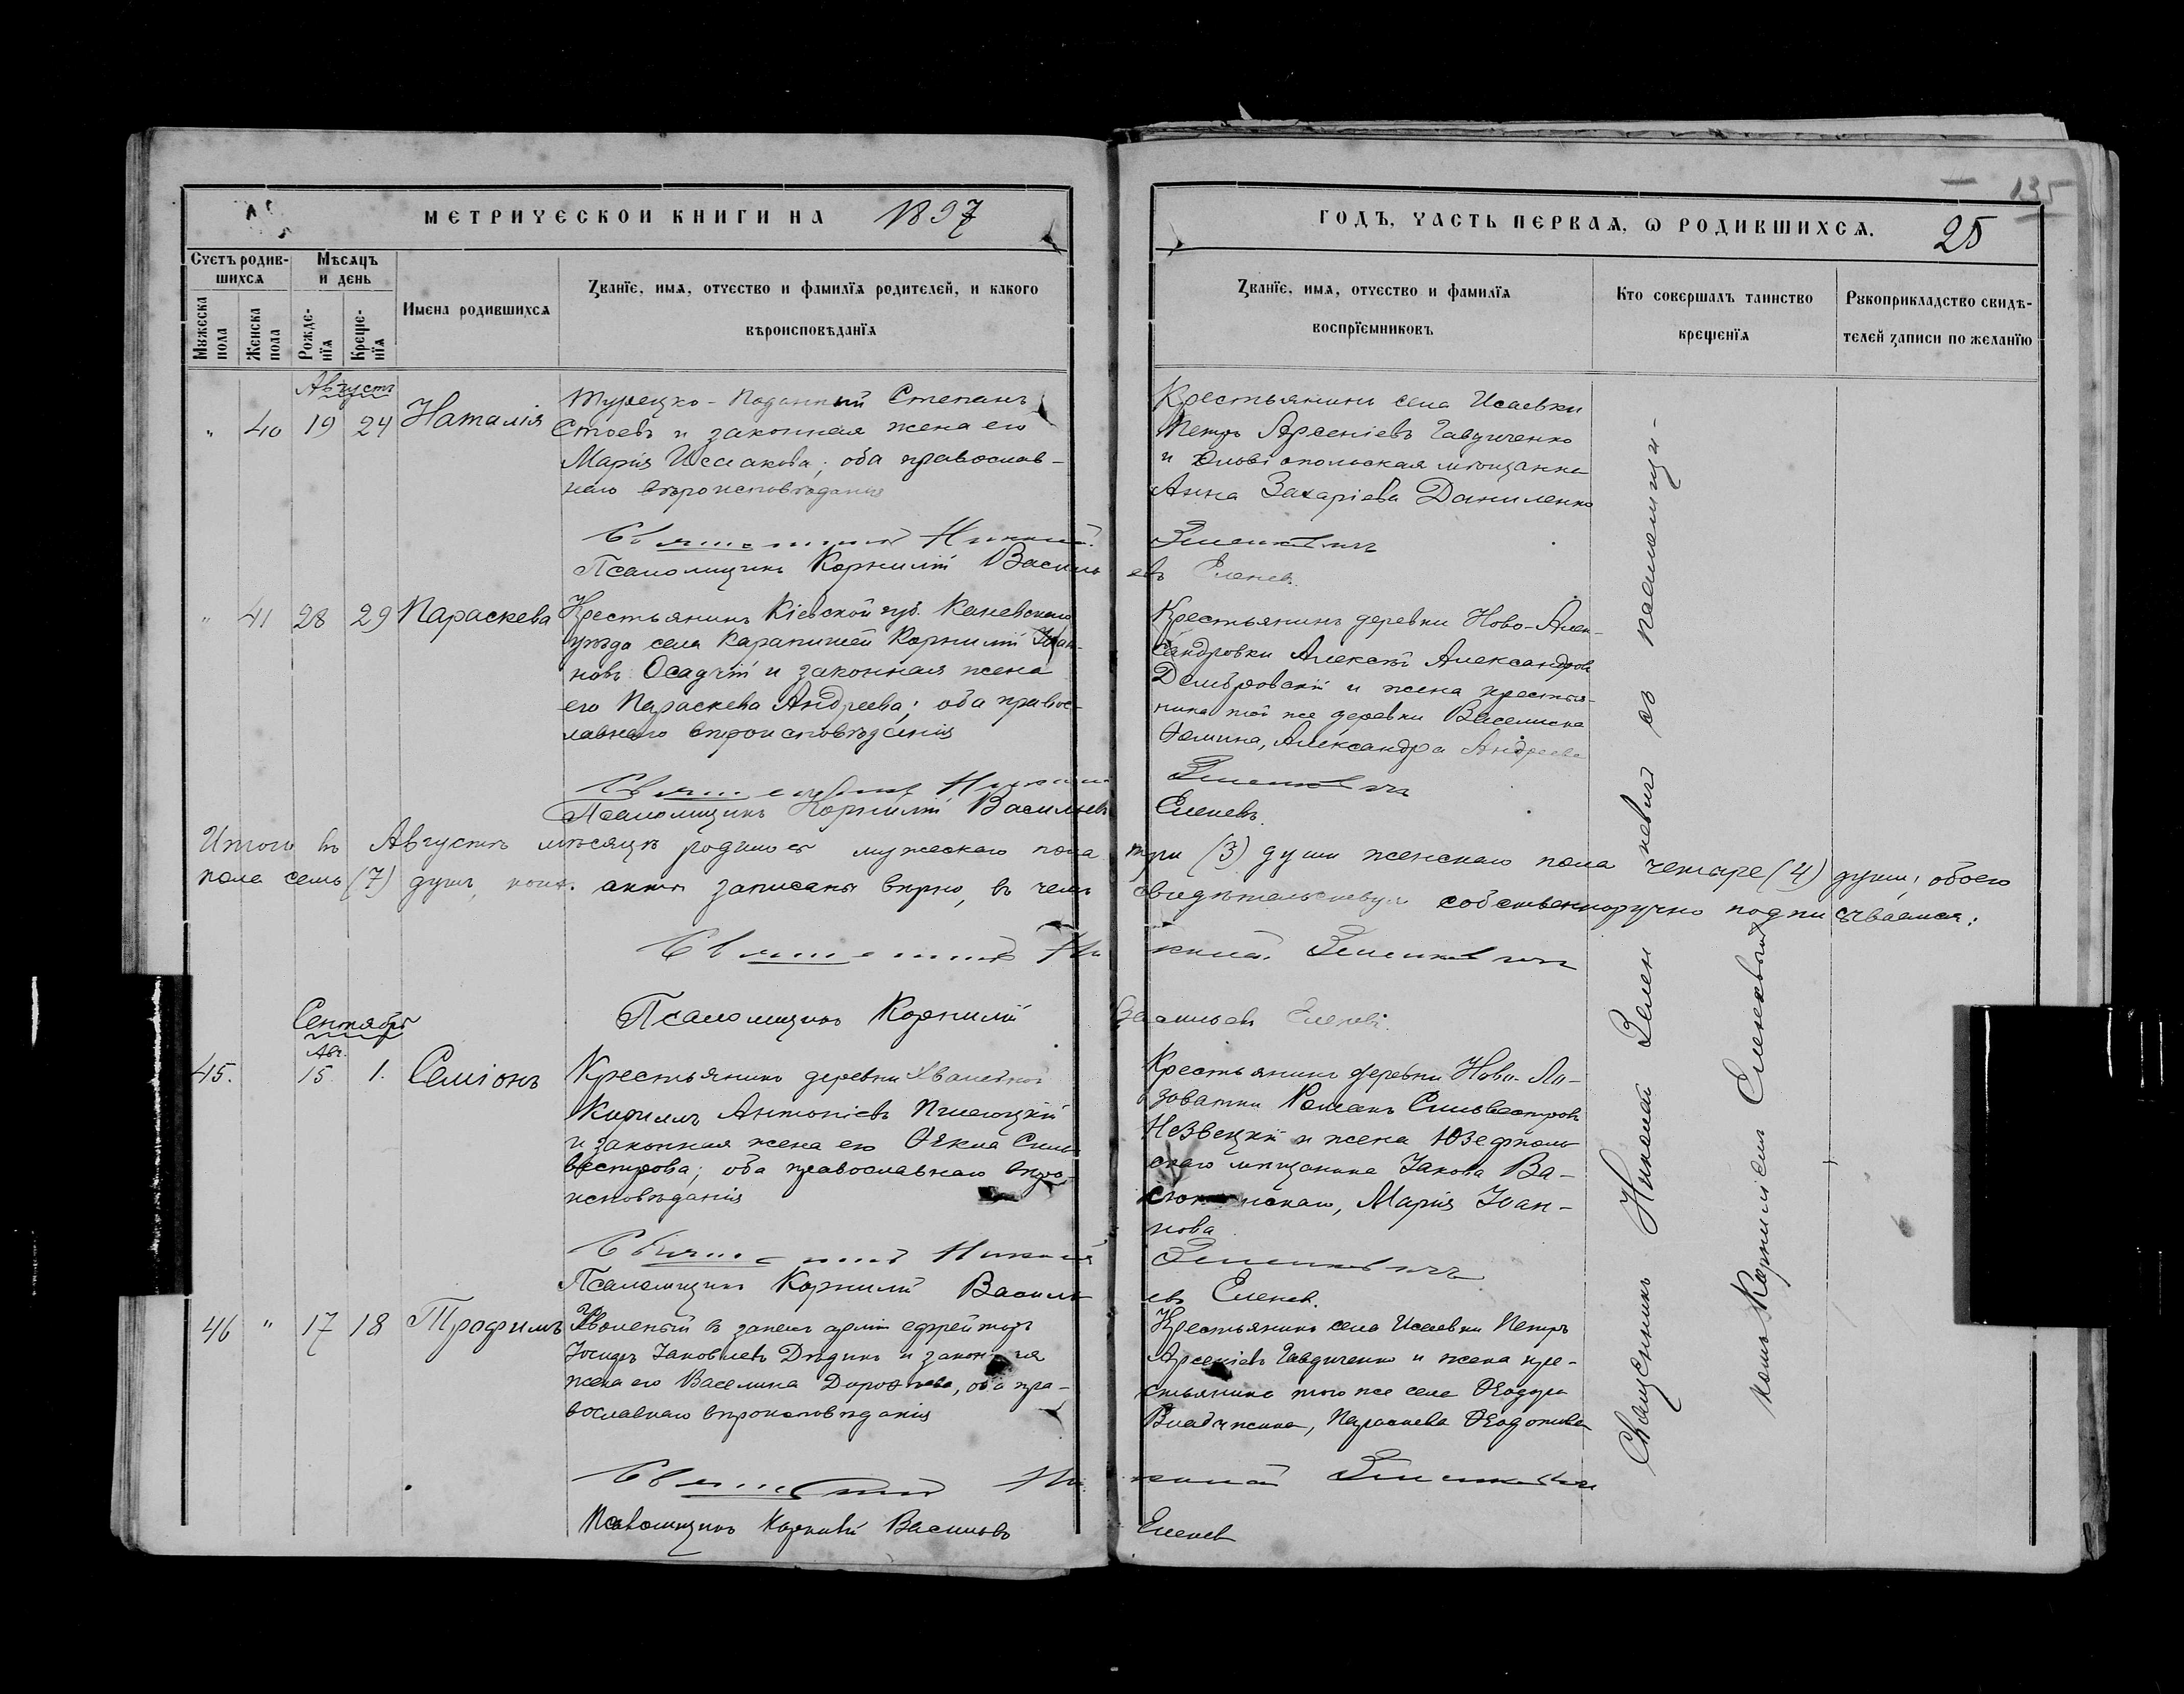 135
МЕТРИЧЕСКОЙ КНИГИ НА 1897
ГОДЪ, ЧАСТЬ ПЕРВАЯ, Ѡ РОДИВШИХСЯ. 25
Счетъ родив-
шихся
Мужеска пола
Женска пола
Мѣсяцъ
и день
Рожде-
нїя
Креще-
нїя
Имена родившихся
Званїе, имя, отчество и фамилїя родителей, и какого
вѣроисповѣданїя
Званїе, имя, отчество и фамилїя
воспрїемниковъ
Кто совершалъ таинство
крещенїя
Рукоприкладство свидѣ-
телей записи по желанїю
Августъ
" 40 19 24 Наталія
Турецко-Поданный Степанъ
Стоевъ и законная жена его
Марія Исаакова; оба православ-
наго вѣроисповѣданія
Священникъ Николай
Псаломщикъ Корнилій Василь
Крестьянинъ села Исаевки
Петръ Арсеніевъ Гавдиченко
и Ольвіопольская мѣщанка
Анна Захаріева Даниленко
Зеленкевичъ
евъ Еленев.
" 41 28 29 Параскева
Крестьянинъ Кіевской губ. Каневскаго
уѣзда села Карапишей Корнилій Іоан-
новъ Осадчій и законная жена
его Параскева Андреева; оба правос-
лавнаго вѣроисповѣданія
Священникъ Николай
Псаломщикъ Корнилій Васильевъ
Крестьянинъ деревни Ново-Алек-
сандровки Алексѣй Александровъ
Домбровскій и жена крестья-
нина той же деревни
Ѳомина, Александра Андреева
Зеленкевичъ
Еленевъ.
Итого въ Августѣ мѣсяцѣ родилось мужескаго пола три (3) души женскаго пола четыре (4) души, обоего
пола семь (7) душъ, акты записаны вѣрно, въ чемъ свидѣтельствуя собственноручно подписываемся:
Священникъ Николай Зеленкевичъ
Псаломщикъ Корнилій Васильевъ Еленевъ.
Сентябрь
Авг.
45. 15 1. Семіонъ
Крестьянинъ деревни
Кириллъ Антоніевъ
и законная жена его Ѳекла Силь-
вестрова; оба православнаго вѣро-
исповѣданія
Священникъ Николай
Псаломщикъ Корнилій Василь
Крестьянинъ деревни Ново-Ло-
зоватки Романъ Сильвестровъ
и жена Юзефполь-
скаго мѣщанина Іакова Ва-
Марія Іоан-
нова
Зеленкевичъ
евъ Еленев.
46 " 17 18 Трофимъ
Уволеный въ запасъ арміи ефрейторъ
Іосифъ Іаковлевъ Дѣдикъ и законная
жена его Василина Дороѳеева, оба пра-
вославнаго вѣроисповѣданія
Священникъ Ни
Псаломщикъ Корнилій Васильевъ
Крестьянинъ села Исаевки Петръ
Арсеніевъ Гавдиченко и жена кре-
стьянина того же села Ѳеодора
Параскева Ѳеодотова
колай Зеленкевичъ
Еленев
Священникъ Николай Зеленкевичъ со псаломщи-
комъ Корниліемъ Еленевымъ